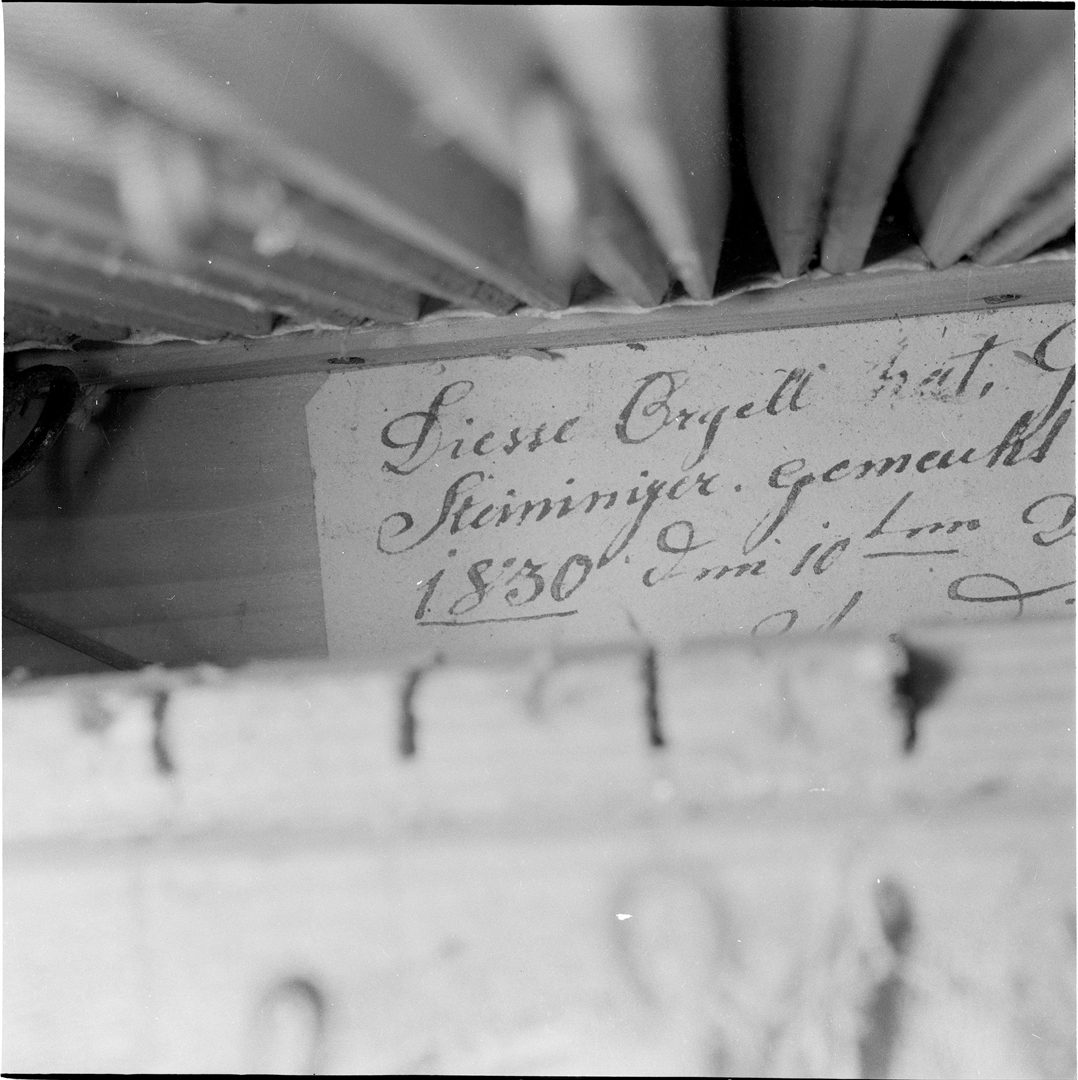 Diesse Orgell hat, G
Steininiger. gemacht
1830 Dnn 10tnn D